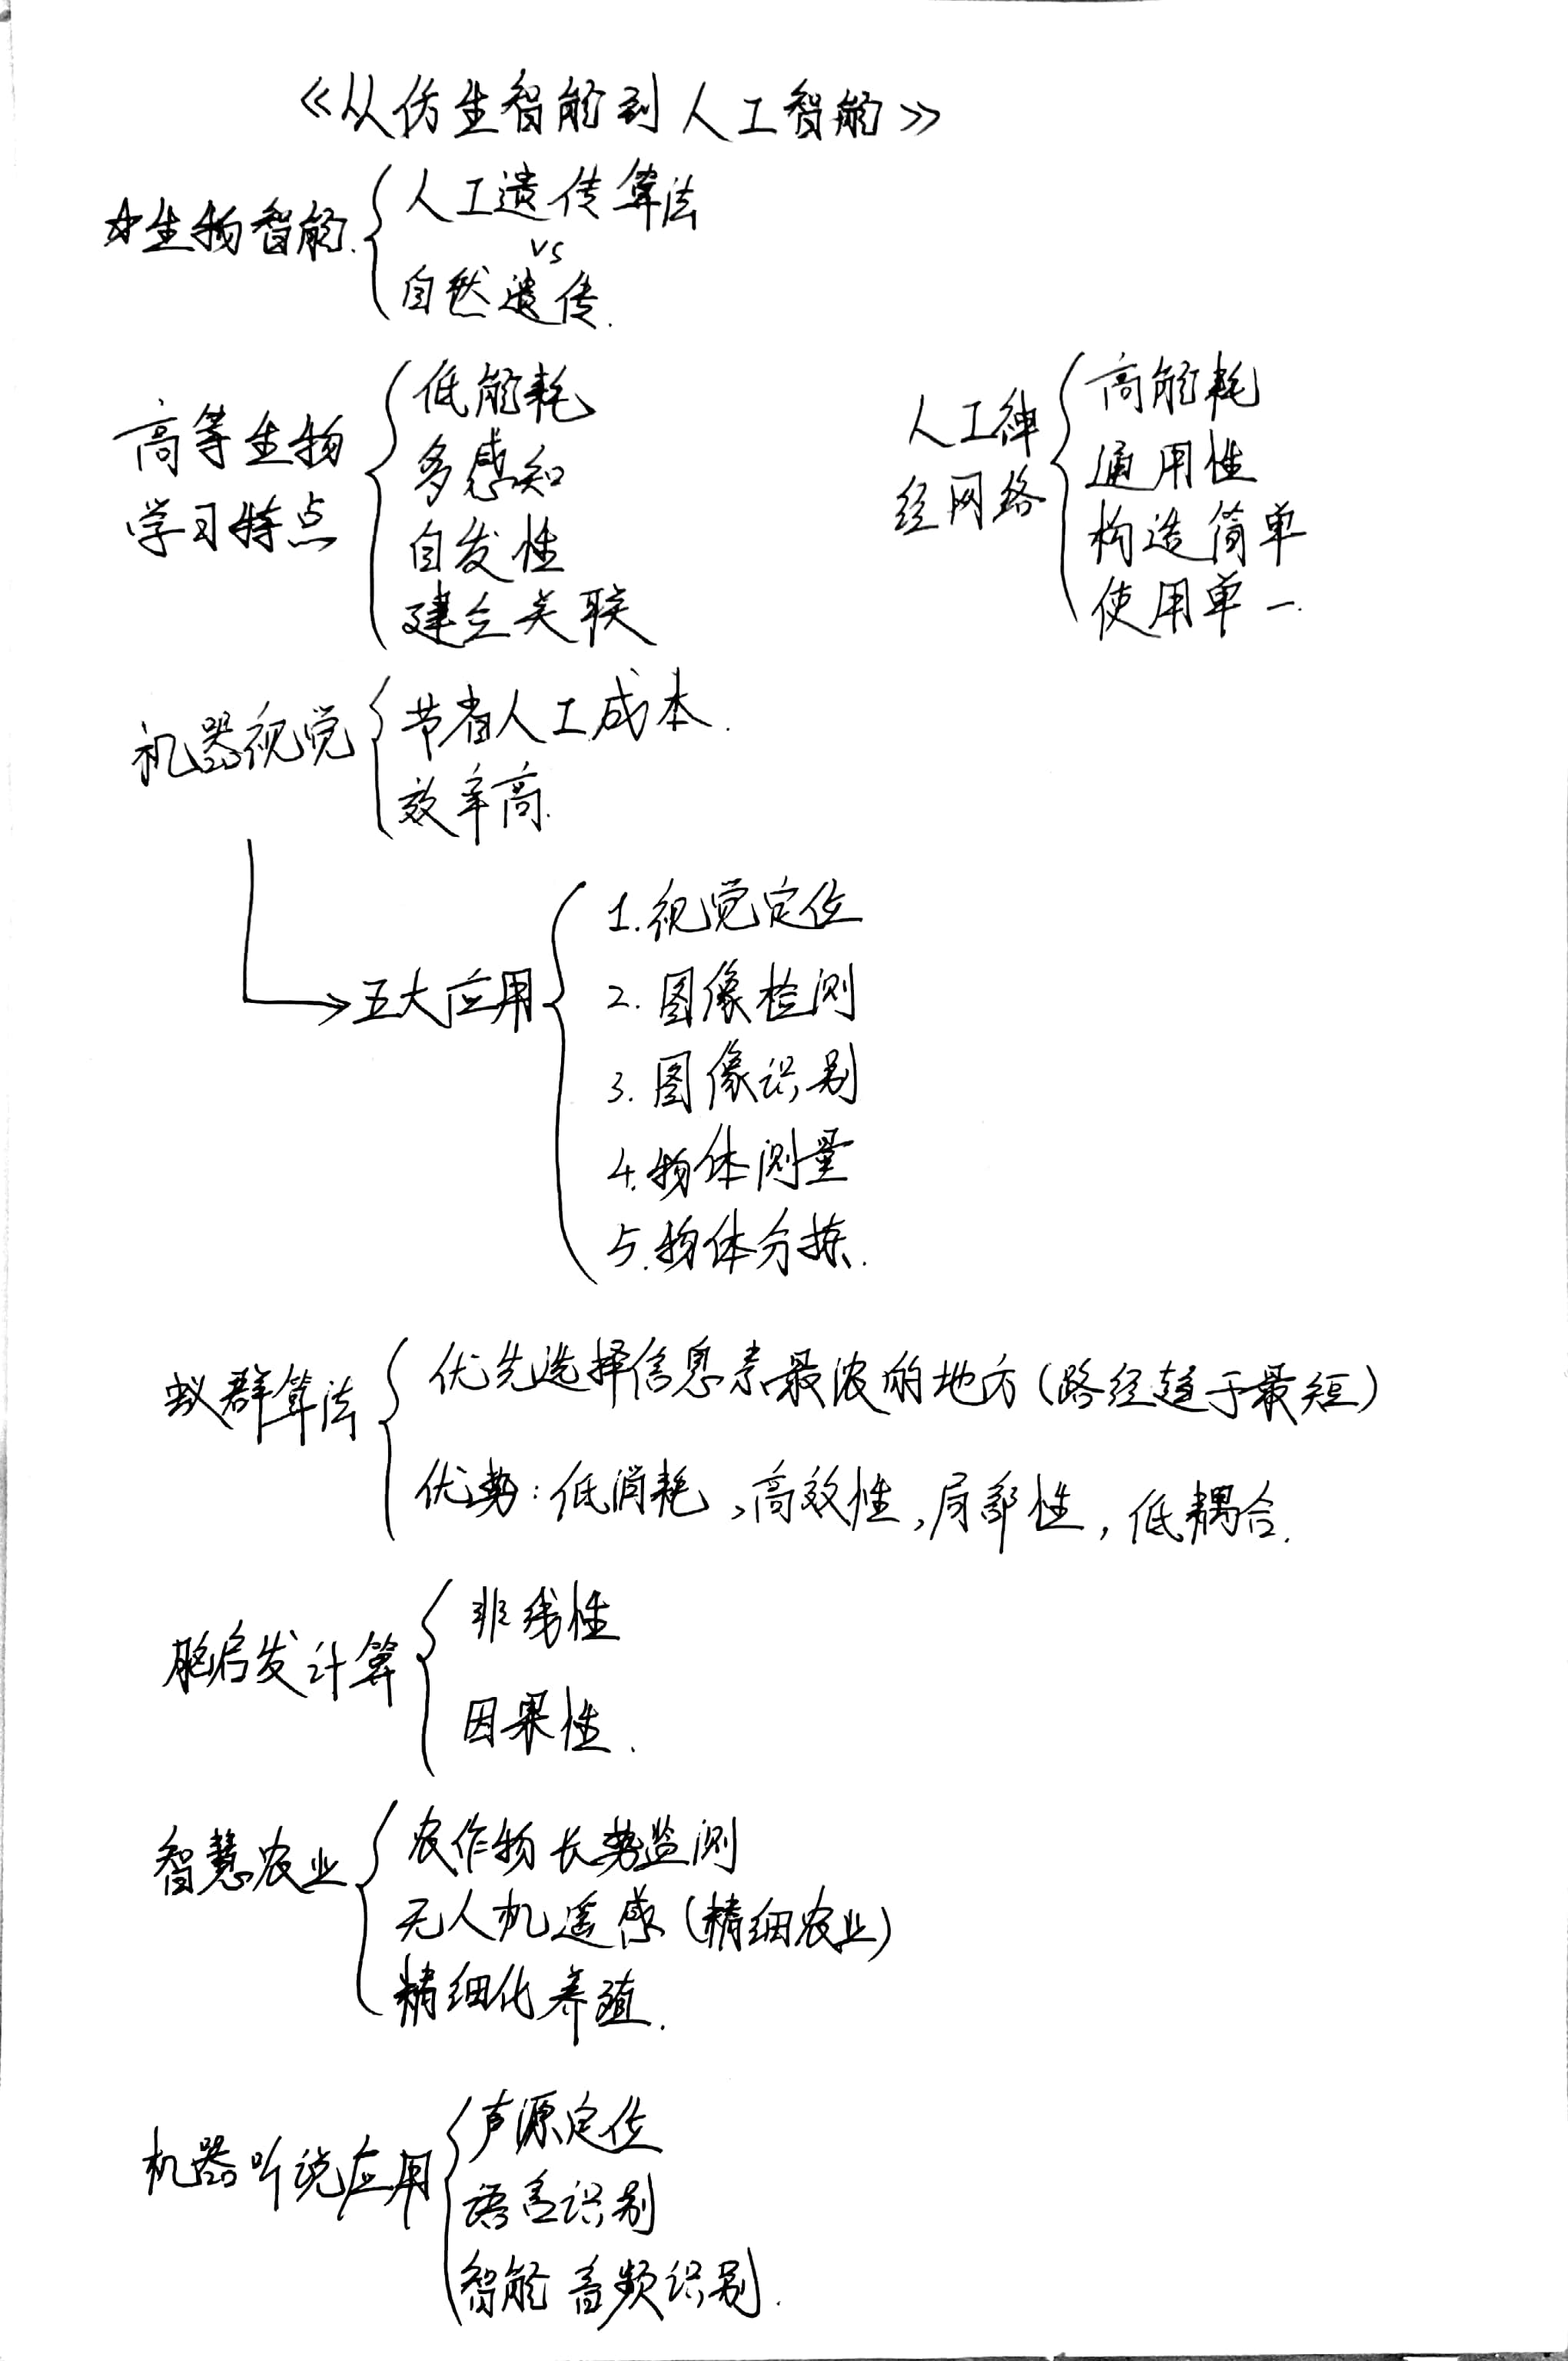 《从仿生智能到人工智能》
☆生物智能.
人工遗传算法
vs
自然遗传.
高等生物
学习特点
低能耗
多感知
自发性
建立关联
人工神
经网络
高能耗
通用性
构造简单
使用单一.
机器视觉
节省人工成本.
效率高.
五大应用
1.视觉定位
2.图像检测
3.图像识别
4.物体测量
5.物体分拣.
蚁群算法
优先选择信息素最浓的地方(路径趋于最短)
优势:低消耗,高效性,局部性,低耦合.
脑启发计算
非线性
因果性.
智慧农业
农作物长势监测
无人机遥感(精细农业)
精细化养殖.
机器听说应用
声源定位
语音识别
智能音频识别.